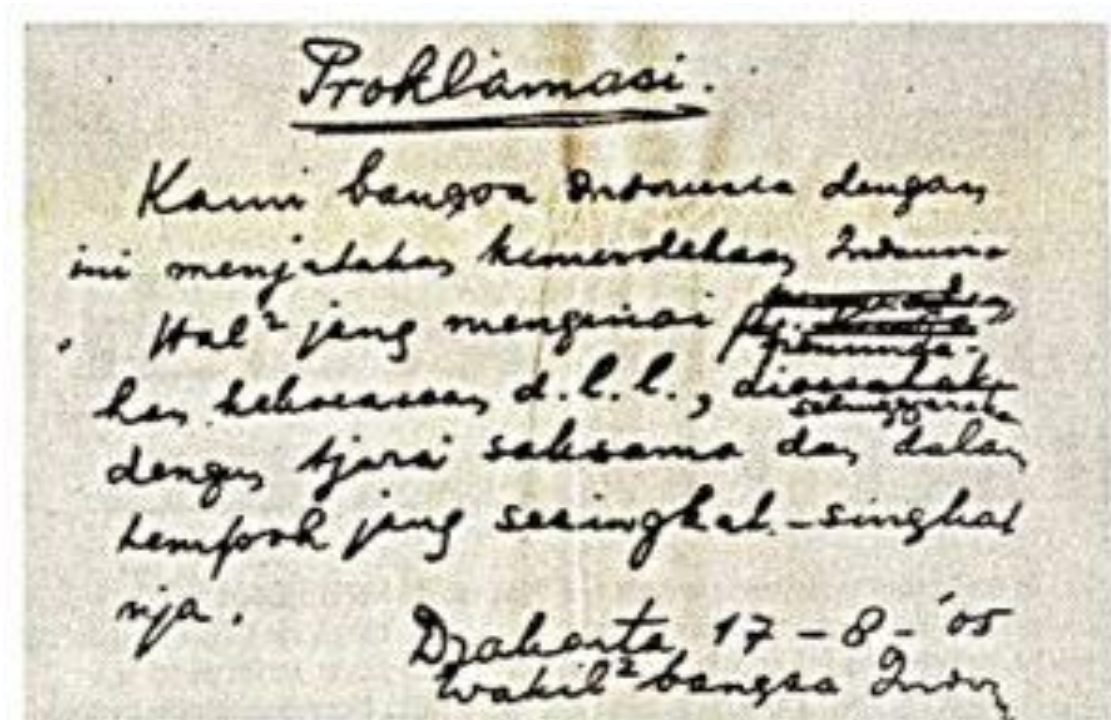 Proklamasi.
Kami bangsa Indonesia dengan
ini menjatakan kemerdekaan Indonesia
. Hal² jang mengenai
peminda-
han kekoeasaan d.l.l.,
diselenggarakan
dengan tjara saksama dan dalam
tempoh jang sesingkat-singkat
nja.
Djakarta 17 - 8 - '05
Wakil² bangsa Indon